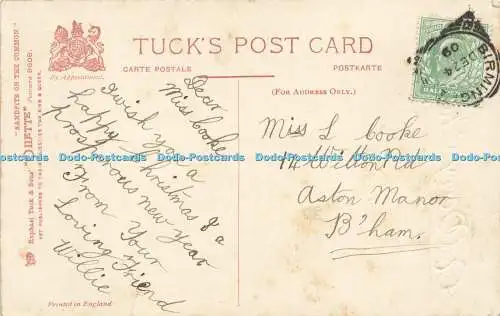 TUCK'S POST CARD
CARTE POSTALE
POSTKARTE
By Appointment.
(FOR ADDRESS ONLY.)
Raphael Tuck & Sons' "OILETTE"
"SANDPITS ON THE COMMON."
ART PUBLISHERS TO THEIR MAJESTIES THE KING & QUEEN.
Dear
Miss Cooke
I wish you a
happy Christmas & a
prosperous new year
From Your
Loving Friend
Willie
Miss L Cooke
14 Wilton Rd
Aston Manor
B'ham.
BIRMING
09
Printed in England
Dodo-Postcards Dodo-Postcards Dodo-Postcards Dodo-Postcards Dodo-Postcards